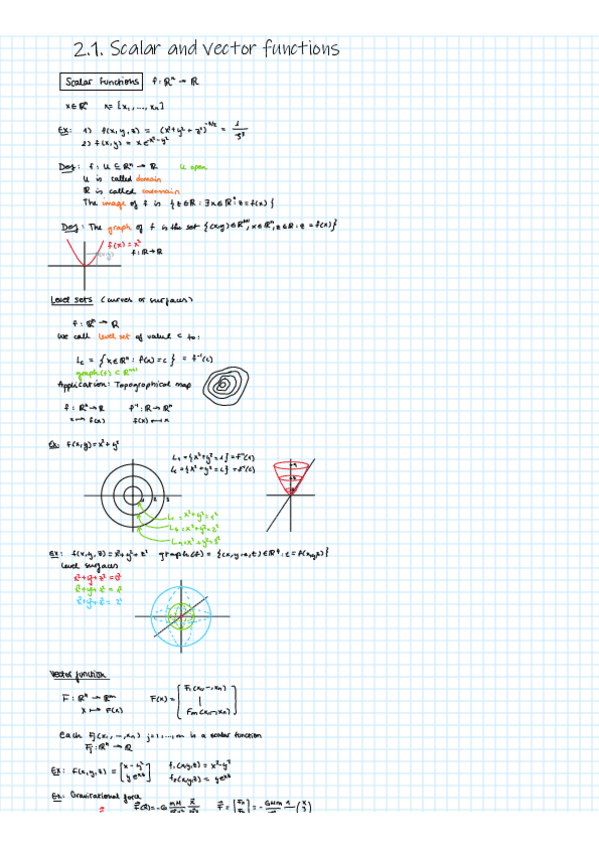 2.1. Scalar and vector functions
Scalar Functions f: ℝⁿ → ℝ
x∈ℝⁿ x=[x₁,...,xₙ]
Ex: 1) f(x,y,z) = (x²+y²+z²)^(-3/2) = 1/
2) f(x,y) = x e^(x²-y²)
Def: f: U ⊆ ℝⁿ → ℝ U open
U is called domain
ℝ is called
The image of f is {z∈ℝ: ∃x∈ℝⁿ: z=f(x)}
Def: The graph of f is the set {(x,y)∈ℝⁿ⁺¹, x∈ℝⁿ, z∈ℝ: z = f(x)}
f(x)=x² f: ℝ→ℝ
Level sets (curves or surfaces)
f: ℝⁿ → ℝ
We call level set of value c to:
L_c = {x∈ℝⁿ: f(x)=c} = f⁻¹(c)
graph(f) ⊂ ℝⁿ⁺¹
Application: Topographical map
f: ℝⁿ→ℝ f⁻¹: ℝ→ℝⁿ
x ↦ f(x) f(x) ↦ x
Ex: f(x,y)=x²+y²
L₁={x²+y²=1}=f⁻¹(1)
L_c={x²+y²=c}=f⁻¹(c)
1 2 3
L₁: x²+y²=1²
x²+y²=2²
x²+y²=3²
Ex: f(x,y,z)=x²+y²+z² graph(f) =
Level surfaces
x²+y²+z²=0²
x²+y²+z²=
x²+y²+z²=2²
Vector function
F: ℝⁿ → ℝᵐ F(x) = [F₁(x₁,...,xₙ)
x ↦ F(x) Fₘ(x₁,...,xₙ)]
Each Fj(x₁,...,xₙ) j=1,...,m is a scalar function
Fj: ℝⁿ → ℝ
Ex: F(x,y,z) = f₁(x,y,z) = x-y²
f₂(x,y,z) =
Ex: Gravitational force